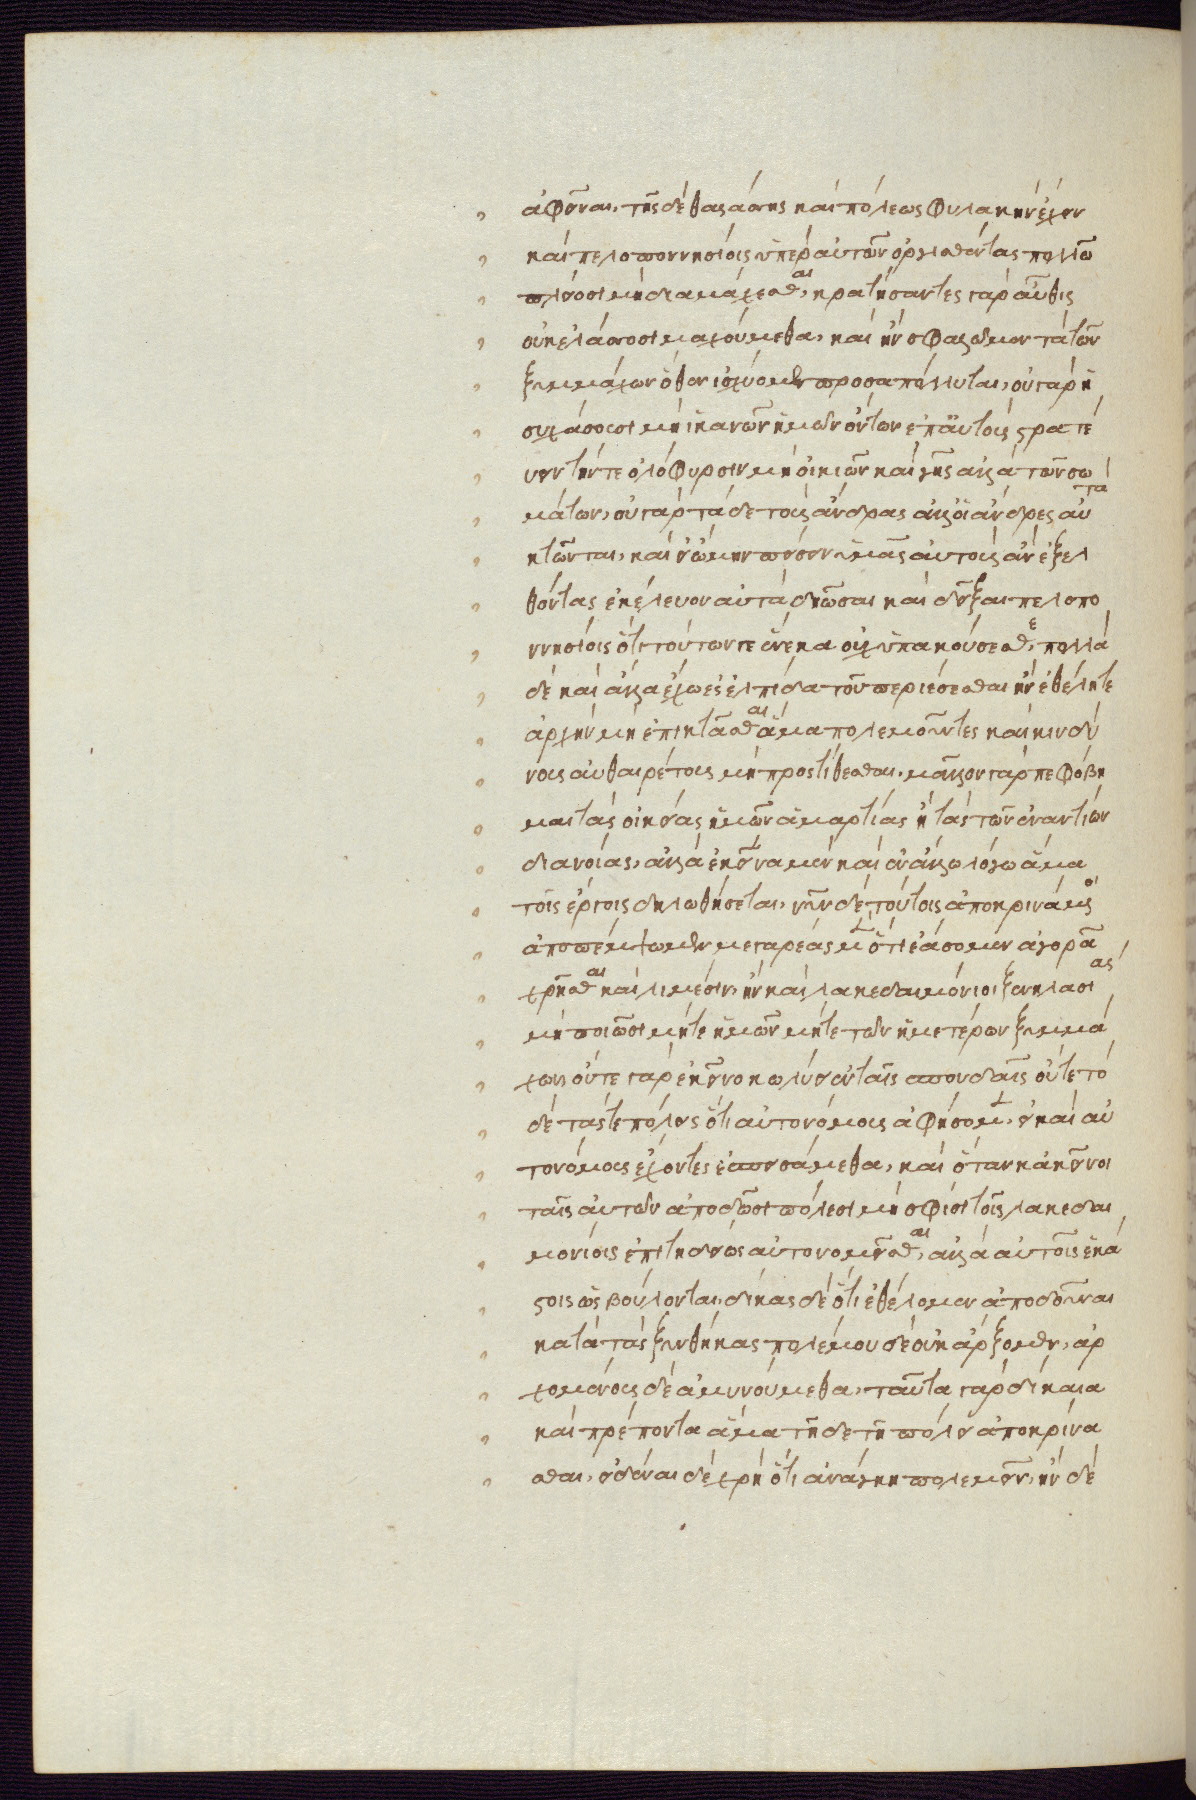 ἀφεῖναι, τῆς δὲ θαλάσσης καὶ πόλεως φυλακὴν ἔχειν
καὶ πελοποννησίοις ὑπὲρ αὐτῶν ὀργισθέντας πολλῶ
πλέοσι μὴ διαμάχεσθαι, κρατήσαντες γὰρ αὖθις
οὐκ ἐλάσσοσι μαχούμεθα, καὶ ἢν σφαλῶμεν τὰ τῶν
ξυμμάχων ὅθεν ἰσχύομεν προσαπόλλυται, οὐ γὰρ ἡ
συχάσουσι μὴ ἱκανῶν ἡμῶν ὄντων ἐπ' αὐτοὺς στρατέ
υειν τήν τε ὀλόφυρσιν μὴ οἰκιῶν καὶ γῆς ἀλλὰ τῶν σω
μάτων, οὐ γὰρ τάδε τοὺς ἄνδρας ἀλλ' οἱ ἄνδρες αὐτὰ
κτῶνται, καὶ εἰ ὤμην πείσειν ὑμᾶς αὐτοὺς ἂν ἐξελ
θόντας ἐκέλευον αὐτὰ δηῶσαι καὶ δεῖξαι πελοπο
ννησίοις ὅτι τούτων γε ἕνεκα οὐχ ὑπακούσεσθε, πολλὰ
δὲ καὶ ἄλλα ἔχω ἐς ἐλπίδα τοῦ περιέσεσθαι ἢν ἐθέλητε
ἀρχὴν μὴ ἐπικτᾶσθαι ἅμα πολεμοῦντες καὶ κινδύ
νους αὐθαιρέτους μὴ προστίθεσθαι, μᾶλλον γὰρ πεφόβη
μαι τὰς οἰκείας ἡμῶν ἁμαρτίας ἢ τὰς τῶν ἐναντίων
διανοίας, ἀλλὰ ἐκεῖνα μὲν καὶ ἐν ἄλλω λόγω ἅμα
τοῖς ἔργοις δηλωθήσεται, νῦν δὲ τούτοις ἀποκρινάμενοι
ἀποπέμψωμεν μεγαρέας μὲν ὅτι ἐάσομεν ἀγορᾶ
χρῆσθαι καὶ λιμέσιν, ἢν καὶ λακεδαιμόνιοι ξενηλασίας
μὴ ποιῶσι μήτε ἡμῶν μήτε τῶν ἡμετέρων ξυμμά
χων, οὔτε γὰρ ἐκεῖνο κωλύει ἐν ταῖς σπονδαῖς οὔτε τό
δε τάς τε πόλεις ὅτι αὐτονόμους ἀφήσομεν, εἰ καὶ αὐ
τονόμους ἔχοντες ἐσπεισάμεθα, καὶ ὅταν κἀκεῖνοι
ταῖς αὐτῶν ἀποδῶσι πόλεσι μὴ σφίσι τοῖς λακεδαι
μονίοις ἐπιτηδείως αὐτονομεῖσθαι, ἀλλὰ αὐτοῖς ἑκά
στοις ὡς βούλονται, δίκας δὲ ὅτι ἐθέλομεν ἀποδοῦναι
κατὰ τὰς ξυνθήκας πολέμου δὲ οὐκ ἄρξομεν, ἀρ
χομένους δὲ ἀμυνούμεθα, ταῦτα γὰρ δίκαια
καὶ πρέποντα ἅμα τῆδε τῆ πόλει ἀποκρίνα
σθαι, εἰδέναι δὲ χρὴ ὅτι ἀνάγκη πολεμεῖν, ἢν δὲ